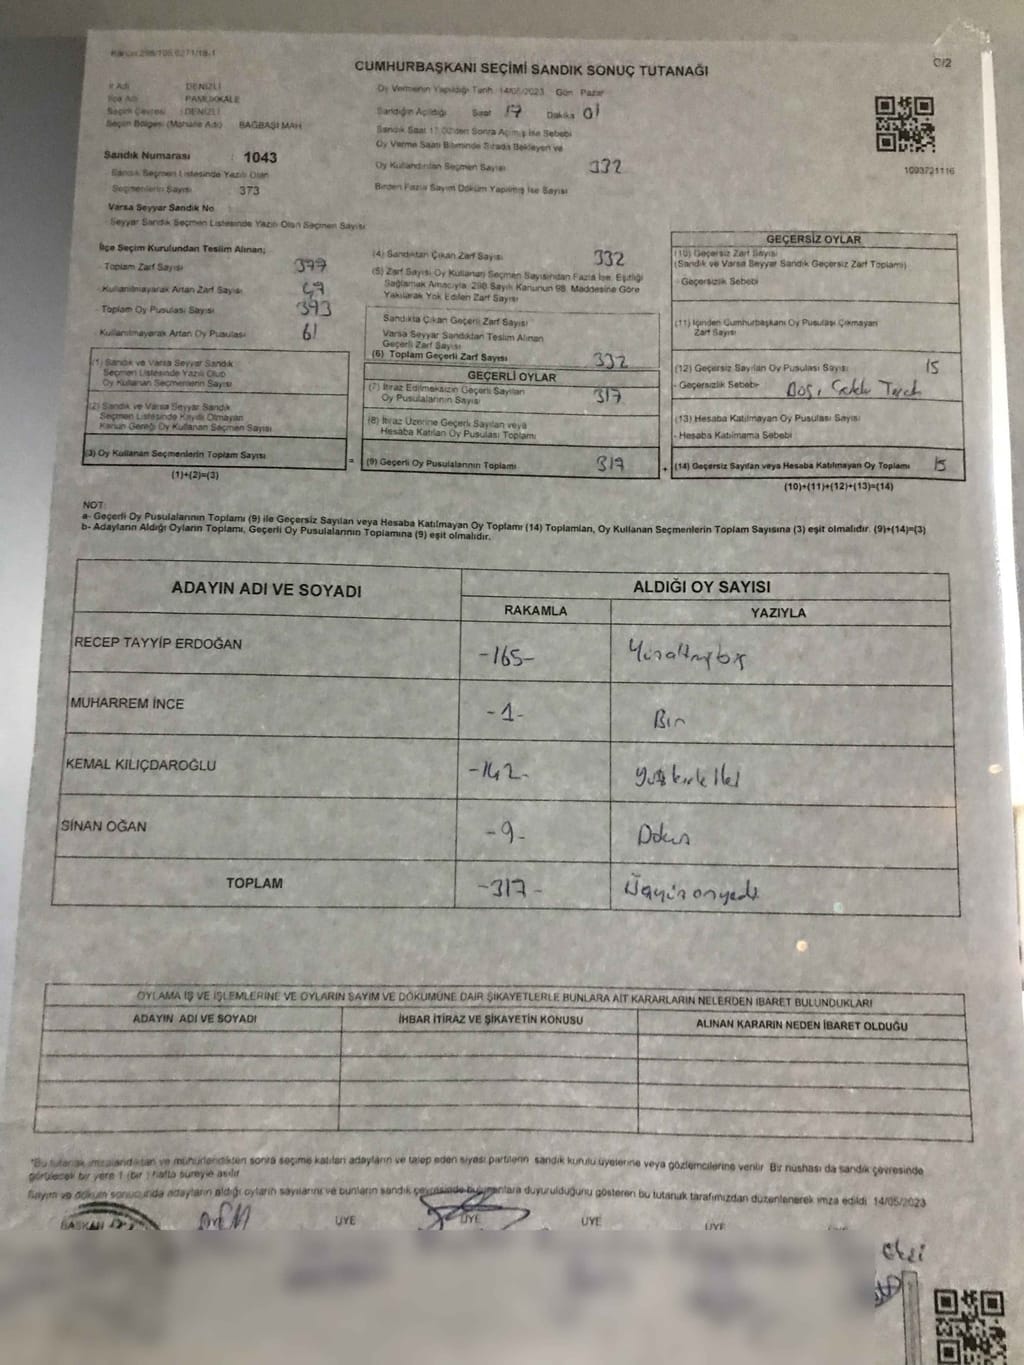 CUMHURBAŞKANI SEÇİMİ SANDIK SONUÇ TUTANAĞI
C/2
İl Adı : DENİZLİ
İlçe Adı : PAMUKKALE
Seçim Çevresi : DENİZLİ
Seçim Bölgesi (Mahalle Adı) : BAĞBAŞI MAH
Sandık Numarası : 1043
Sandık Seçmen Listesinde Yazılı Olan
Seçmenlerin Sayısı : 373
Varsa Seyyar Sandık No
Seyyar Sandık Seçmen Listesinde Yazılı Olan Seçmen Sayısı
Oy Vermenin Yapıldığı Tarih 14/05/2023 Gün Pazar
Sandığın Açıldığı Saat 17 Dakika 01
Sandık Saat 17.00'den Sonra Açılmış İse Sebebi
Oy Verme Saati Bitiminde Sırada Bekleyen ve
Oy Kullandırılan Seçmen Sayısı 332
Birden Fazla Sayım Döküm Yapılmış İse Sayısı
1093721116
İlçe Seçim Kurulundan Teslim Alınan;
Toplam Zarf Sayısı
Kullanılmayarak Artan Zarf Sayısı 49
Toplam Oy Pusulası Sayısı 393
Kullanılmayarak Artan Oy Pusulası 61
(1) Sandık ve Varsa Seyyar Sandık
Seçmen Listesinde Yazılı Olup
Oy Kullanan Seçmenlerin Sayısı
(2) Sandık ve Varsa Seyyar Sandık
Seçmen Listesinde Kayıtlı Olmayan
Kanun Gereği Oy Kullanan Seçmen Sayısı
(3) Oy Kullanan Seçmenlerin Toplam Sayısı
(1)+(2)=(3)
(4) Sandıktan Çıkan Zarf Sayısı 332
(5) Zarf Sayısı Oy Kullanan Seçmen Sayısından Fazla İse, Eşitliği
Sağlamak Amacıyla, 298 Sayılı Kanunun 98. Maddesine Göre
Yakılarak Yok Edilen Zarf Sayısı
Sandıkta Çıkan Geçerli Zarf Sayısı
Varsa Seyyar Sandıktan Teslim Alınan
Geçerli Zarf Sayısı
(6) Toplam Geçerli Zarf Sayısı 332
GEÇERLİ OYLAR
(7) İtiraz Edilmeksizin Geçerli Sayılan
Oy Pusulalarının Sayısı 317
(8) İtiraz Üzerine Geçerli Sayılan veya
Hesaba Katılan Oy Pusulası Toplamı
= (9) Geçerli Oy Pusulalarının Toplamı 317
GEÇERSİZ OYLAR
(10) Geçersiz Zarf Sayısı
(Sandık ve Varsa Seyyar Sandık Geçersiz Zarf Toplamı)
- Geçersizlik Sebebi
(11) İçinden Cumhurbaşkanı Oy Pusulası Çıkmayan
Zarf Sayısı
(12) Geçersiz Sayılan Oy Pusulası Sayısı 15
- Geçersizlik Sebebi Boş,
(13) Hesaba Katılmayan Oy Pusulası Sayısı
- Hesaba Katılmama Sebebi
+ (14) Geçersiz Sayılan veya Hesaba Katılmayan Oy Toplamı 15
(10)+(11)+(12)+(13)=(14)
NOT:
a- Geçerli Oy Pusulalarının Toplamı (9) ile Geçersiz Sayılan veya Hesaba Katılmayan Oy Toplamı (14) Toplamları, Oy Kullanan Seçmenlerin Toplam Sayısına (3) eşit olmalıdır. (9)+(14)=(3)
b- Adayların Aldığı Oyların Toplamı, Geçerli Oy Pusulalarının Toplamına (9) eşit olmalıdır.
ADAYIN ADI VE SOYADI ALDIĞI OY SAYISI
RAKAMLA YAZIYLA
RECEP TAYYİP ERDOĞAN -165- Yüzaltmışbeş
MUHARREM İNCE -1- Bir
KEMAL KILIÇDAROĞLU -142- Yüzkırkiki
SİNAN OĞAN -9- Dokuz
TOPLAM -317- Üçyüzonyedi
OYLAMA İŞ VE İŞLEMLERİNE VE OYLARIN SAYIM VE DÖKÜMÜNE DAİR ŞİKAYETLERLE BUNLARA AİT KARARLARIN NELERDEN İBARET BULUNDUKLARI
ADAYIN ADI VE SOYADI İHBAR İTİRAZ VE ŞİKAYETİN KONUSU ALINAN KARARIN NEDEN İBARET OLDUĞU
*Bu tutanak imzalandıktan ve mühürlendikten sonra seçime katılan adayların ve talep eden siyasi partilerin sandık kurulu üyelerine veya gözlemcilerine verilir. Bir nüshası da sandık çevresinde
görülecek bir yere 1 (bir) hafta süreyle asılır
Sayım ve döküm sonucunda adayların aldığı oyların sayılarını ve bunların sandık çevresinde bulunanlara duyurulduğunu gösteren bu tutanak tarafımızdan düzenlenerek imza edildi. 14/05/2023
BAŞKAN ÜYE ÜYE ÜYE ÜYE